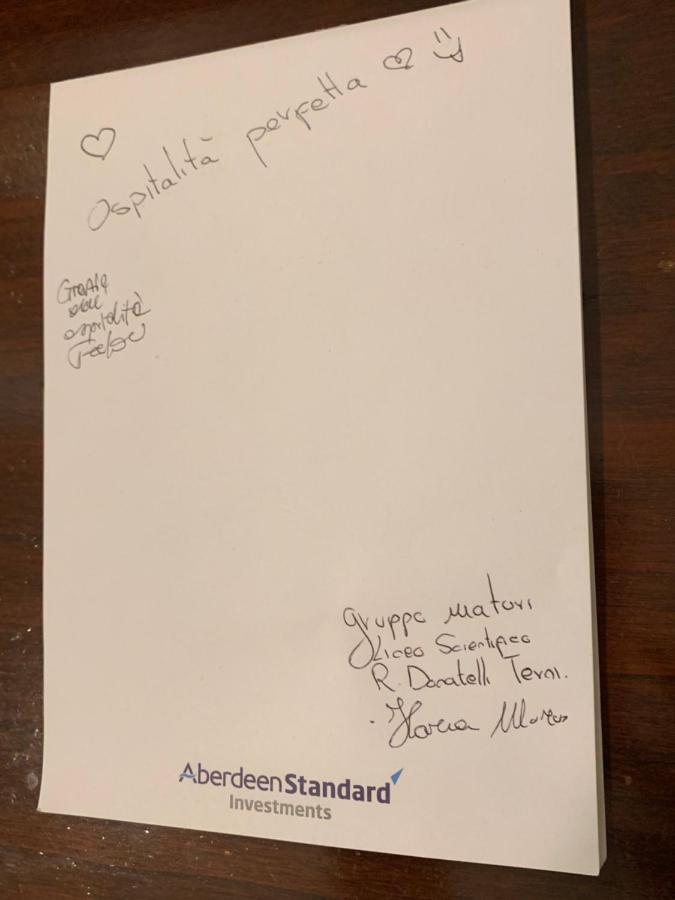 Ospitalità perfetta
Grazie
ospitalità
gruppo maturi
Liceo Scientifico
R. Donatelli Terni.
Ilaria
AberdeenStandard
Investments